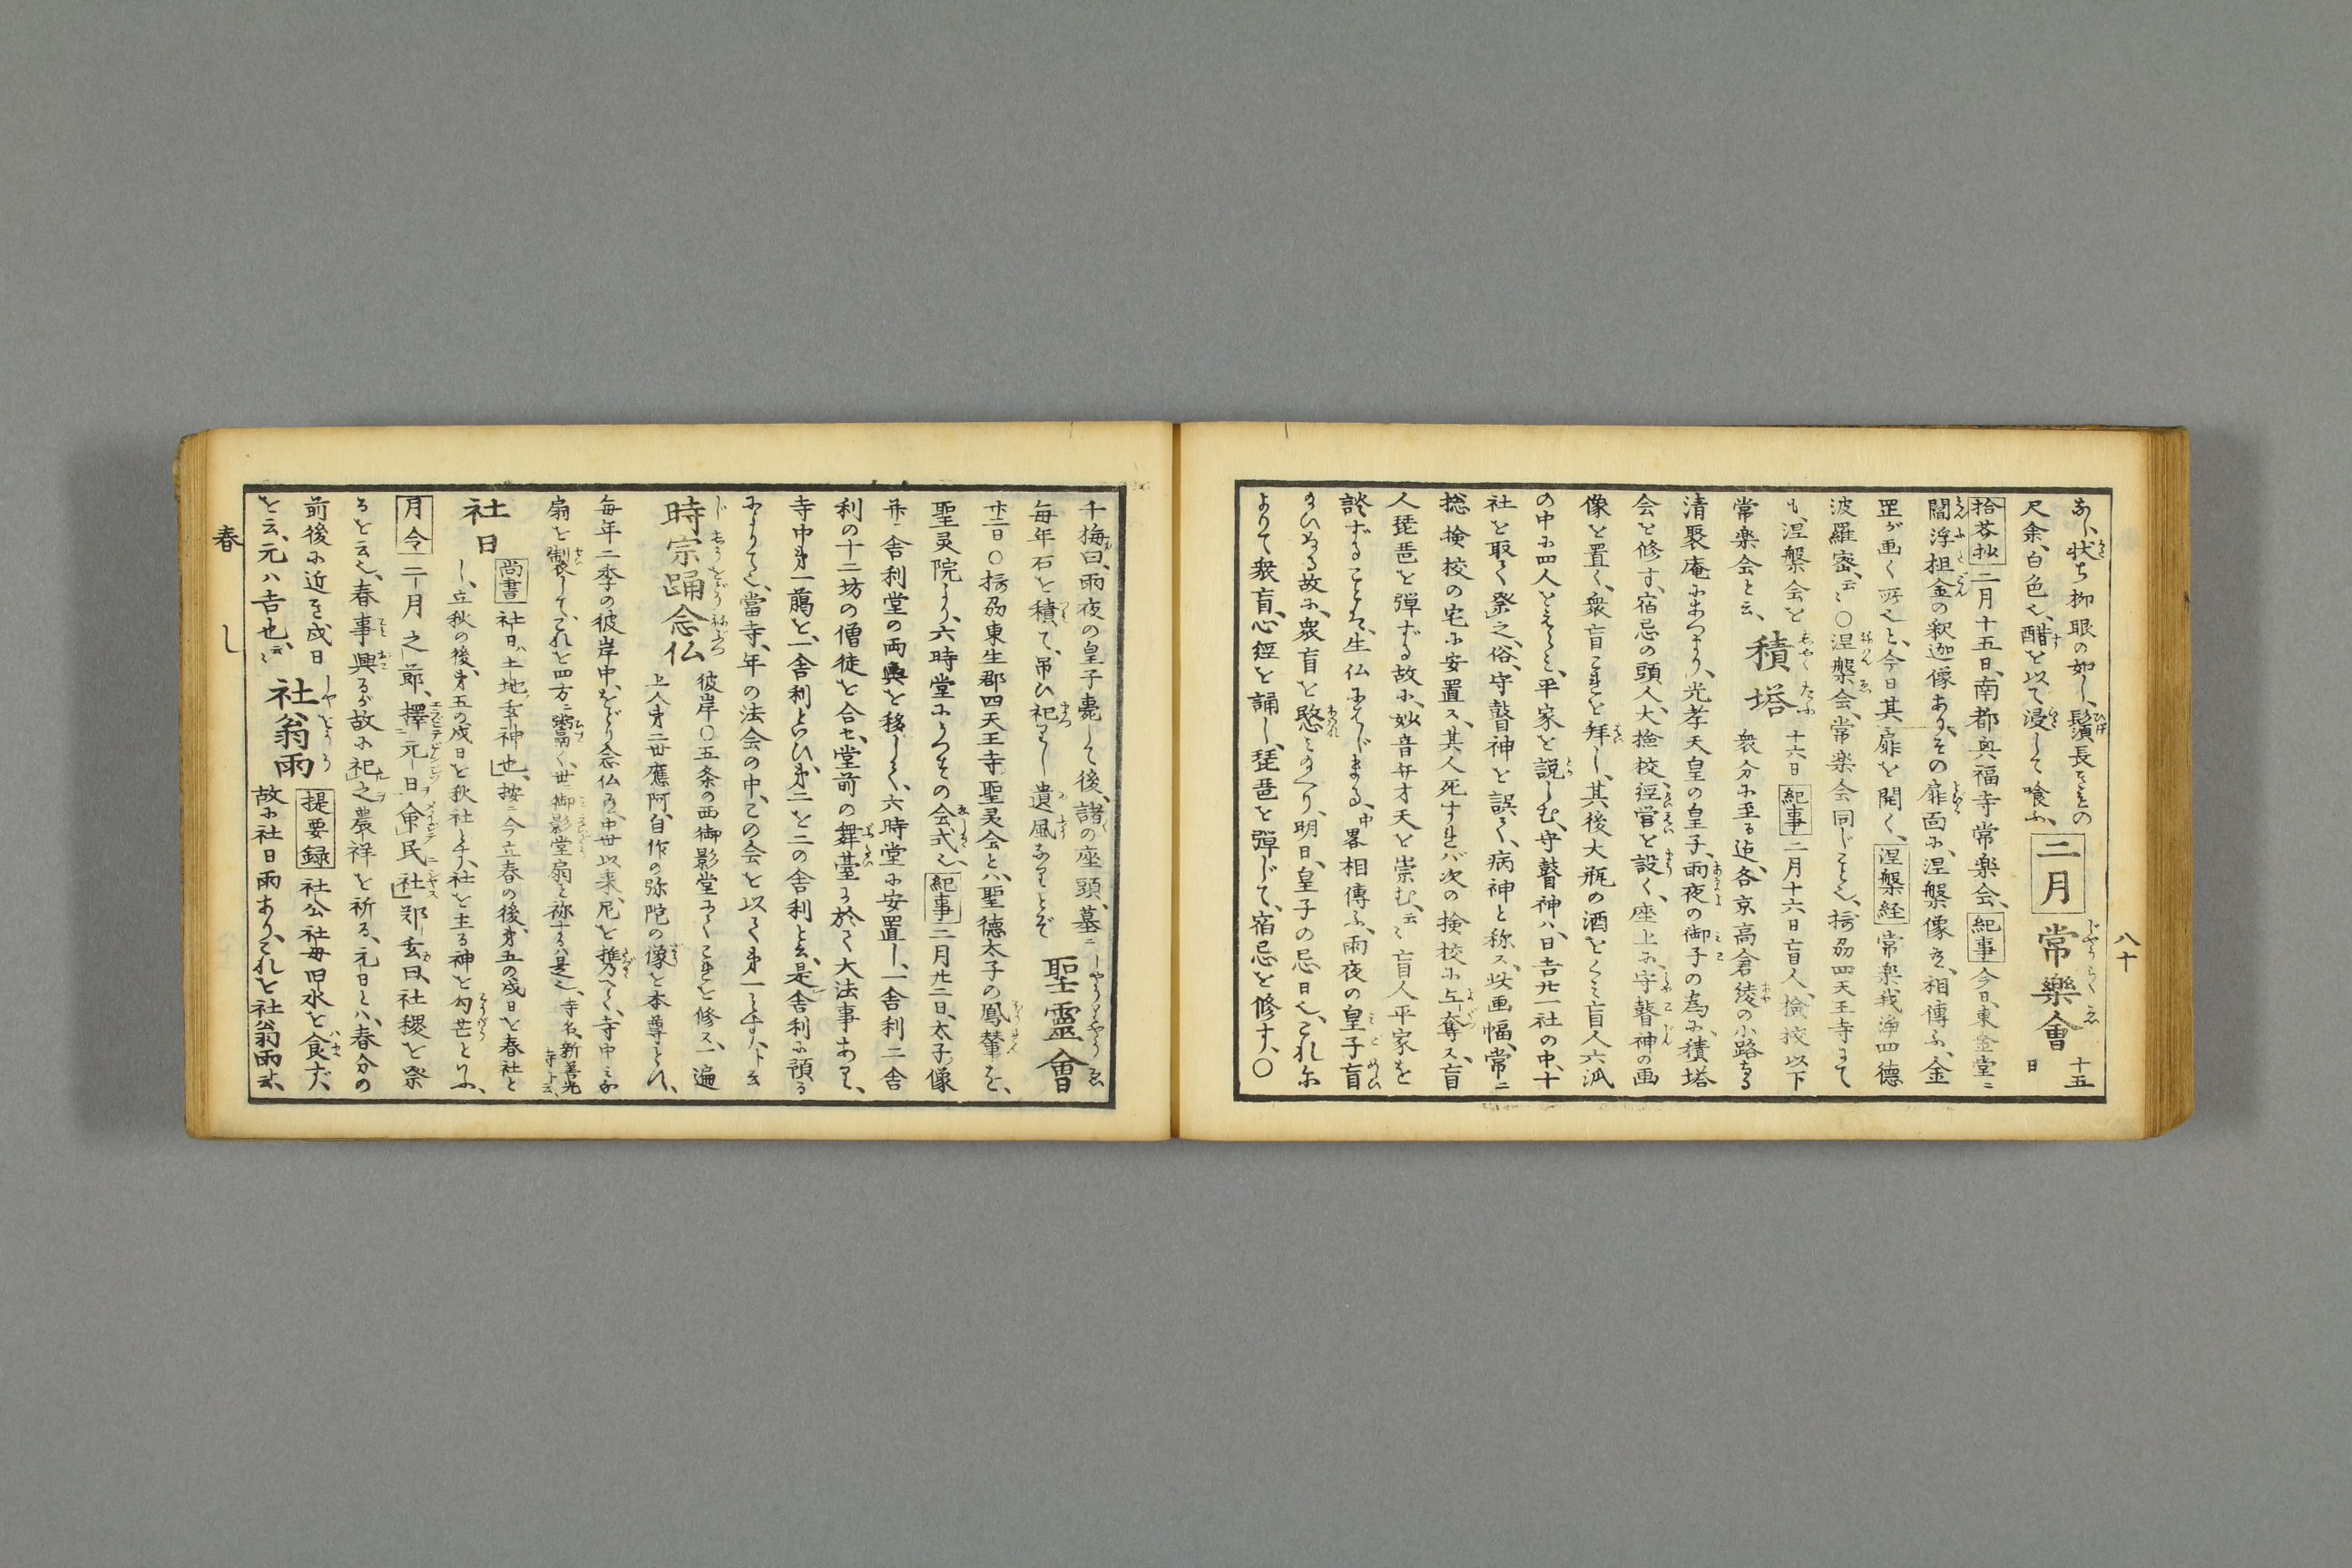 八十
あり、状ち柳眼の如し、鬚長きもの
尺余、白色也、醋を以て浸して喰ふ、 二月 常樂會 十五日
拾芥抄 二月十五日、南都興福寺常楽会、 紀事 今日、東金堂ニ
閻浮担金の釈迦像あり、その扉面に、涅槃像を、相傳ふ、金
罡が画く所也と、今日其扉を開く、 涅槃経 常楽我浄四徳
波羅密、云々 ○涅槃会、常楽会同じこと也、摂刕四天王寺にて
も、涅槃会を 積塔 十六日 紀事 二月十六日盲人、撿挍以下
常楽会と云、 衆分に至る迄、各京高倉綾の小路なる
清聚庵にあつまり、光孝天皇の皇子、雨夜の御子の為に、積塔
会を修す、宿忌の頭人、大撿挍経営を設く、座上に守瞽神の画
像を置く、衆盲これを拜し、其後大瓶の酒をくミ、盲人六派
の中に四人をえらミ、平家を説しむ、守瞽神ハ、日吉廿一社の中、十
社を取て祭之、俗、守瞽神を誤て、病神と称ス、此画幅、常ニ
惣撿挍の宅に安置ス、其人死すれバ次の撿挍に与奪ス、盲
人琵琶を弾ずる故に、妙音弁才天を崇む、云々 盲人平家を
談ずること、生仏にはじまる、中畧 相傳ふ、雨夜の皇子盲
のひなる故に、衆盲を愍ミのへり、明日、皇子の忌日也、これに
よりて衆盲、心経を誦し、琵琶を弾じて、宿忌を修す、○
千梅曰、雨夜の皇子薨して後、諸の座頭、墓ニ
毎年石を積て、吊ひ祀りし遺風なりとぞ 聖靈會
廿二日 ○摂刕東生郡四天王寺聖灵会と、ハ聖徳太子の鳳輦を、
聖灵院より、六時堂にうつすの会式也、 紀事 二月廿二日、太子像
并ニ舎利堂の両輿を移して、六時堂に安置し、一舎利二舎
利の十二坊の僧徒を合せ、堂前の舞臺に於て大法事あり、
寺中㐧一﨟を、一舎利といひ、㐧二を二の舎利と云、是舎利に預る
によりて也、當寺、年の法会の中、この会を以て㐧一とす、ト云
時宗踊念仏 彼岸○五条の西御影堂にてこれを修ス、一遍
上人㐧二世應阿、自作の弥陀の像を本尊とし、
毎年二季の彼岸中、をどり念仏あり、中世以来、尼を携へて、寺中ニ
扇を製して、これを四方ニ鬻く、世ニ御影堂扇と称するハ是也、寺名、新善光寺ト云、
社日 尚書 社日ハ土地玄神也、按ニ今立春の後、㐧五の戊日を春社と
し、立秋の後、㐧五の戊日を秋社とす、社を主る神を勾芒といふ、
月令 二月之節、擇元日、命民社 鄭玄曰、社稷を祭
るを云也、春事興るが故に祀之農祥を祈る、元日とハ、春分の
前後に近き戊日 社翁雨 提要録 社公社毎旧水を食ず、
を云、元ハ吉也、云々 故に社日雨あり、これを社翁雨ト云、
春 し